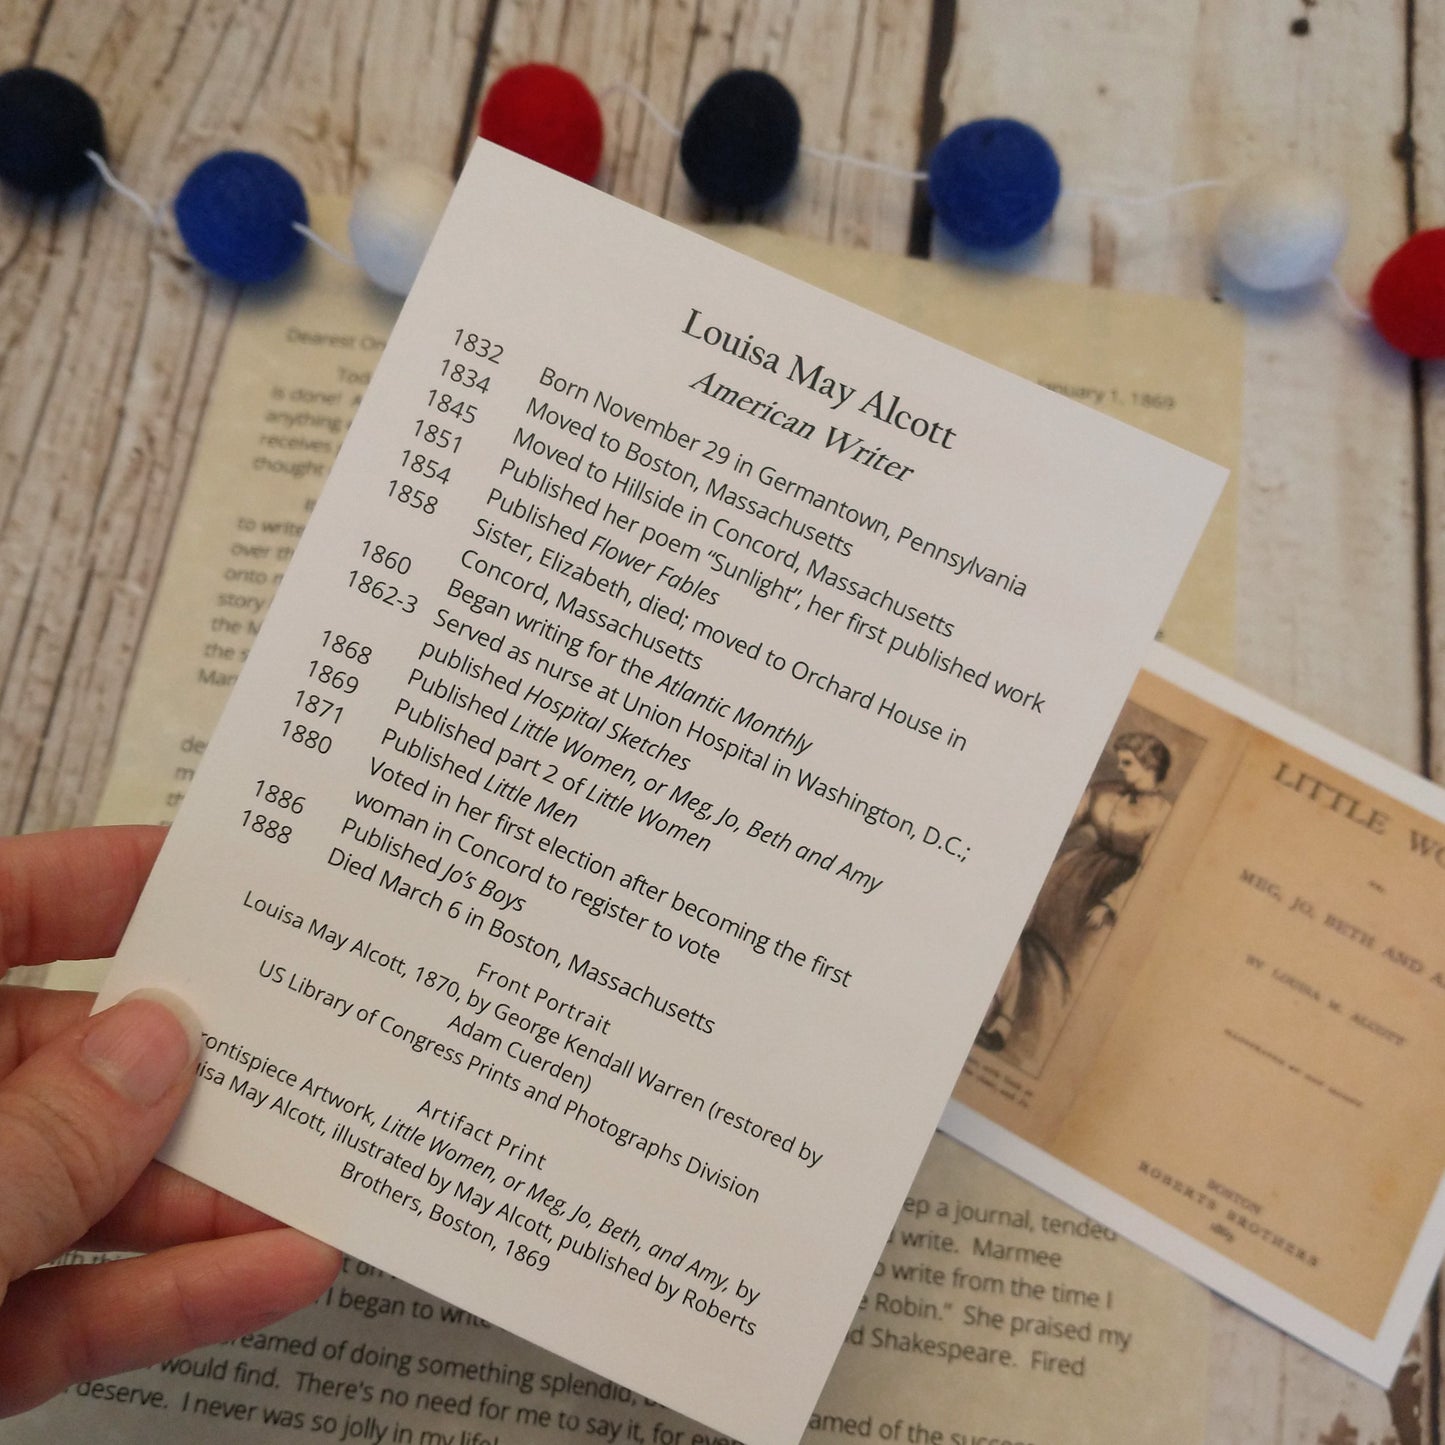 Louisa May Alcott
American Writer
1832 Born November 29 in Germantown, Pennsylvania
1834 Moved to Boston, Massachusetts
1845 Moved to Hillside in Concord, Massachusetts
1851 Published her poem “Sunlight”, her first published work
1854 Published Flower Fables
1858 Sister, Elizabeth, died; moved to Orchard House in
Concord, Massachusetts
1860 Began writing for the Atlantic Monthly
1862-3 Served as nurse at Union Hospital in Washington, D.C.;
published Hospital Sketches
1868 Published Little Women, or Meg, Jo, Beth and Amy
1869 Published part 2 of Little Women
1871 Published Little Men
1880 Voted in her first election after becoming the first
woman in Concord to register to vote
1886 Published Jo’s Boys
1888 Died March 6 in Boston, Massachusetts
Front Portrait
Louisa May Alcott, 1870, by George Kendall Warren (restored by
Adam Cuerden)
US Library of Congress Prints and Photographs Division
Artifact Print
rontispiece Artwork, Little Women, or Meg, Jo, Beth, and Amy, by
uisa May Alcott, illustrated by May Alcott, published by Roberts
Brothers, Boston, 1869
Dearest
1, 1869
is done!
anything
receives
thought
to write
over
onto
story
the
the
LITTLE
MEG, JO, BETH AND
BY LOUISA M. ALCOTT
BOSTON
ROBERTS BROTHERS
1869
ep a journal, tended
write. Marmee
write from the time I
Robin.” She praised my
d Shakespeare. Fired
I began to write
reamed of doing something splendid,
would find. There's no need for me to say it, for
deserve. I never was so jolly in my life!
amed of the